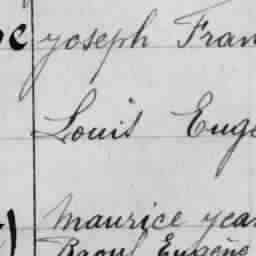 Joseph Fran
Louis Euge
Maurice Jean
Raoul Eugène